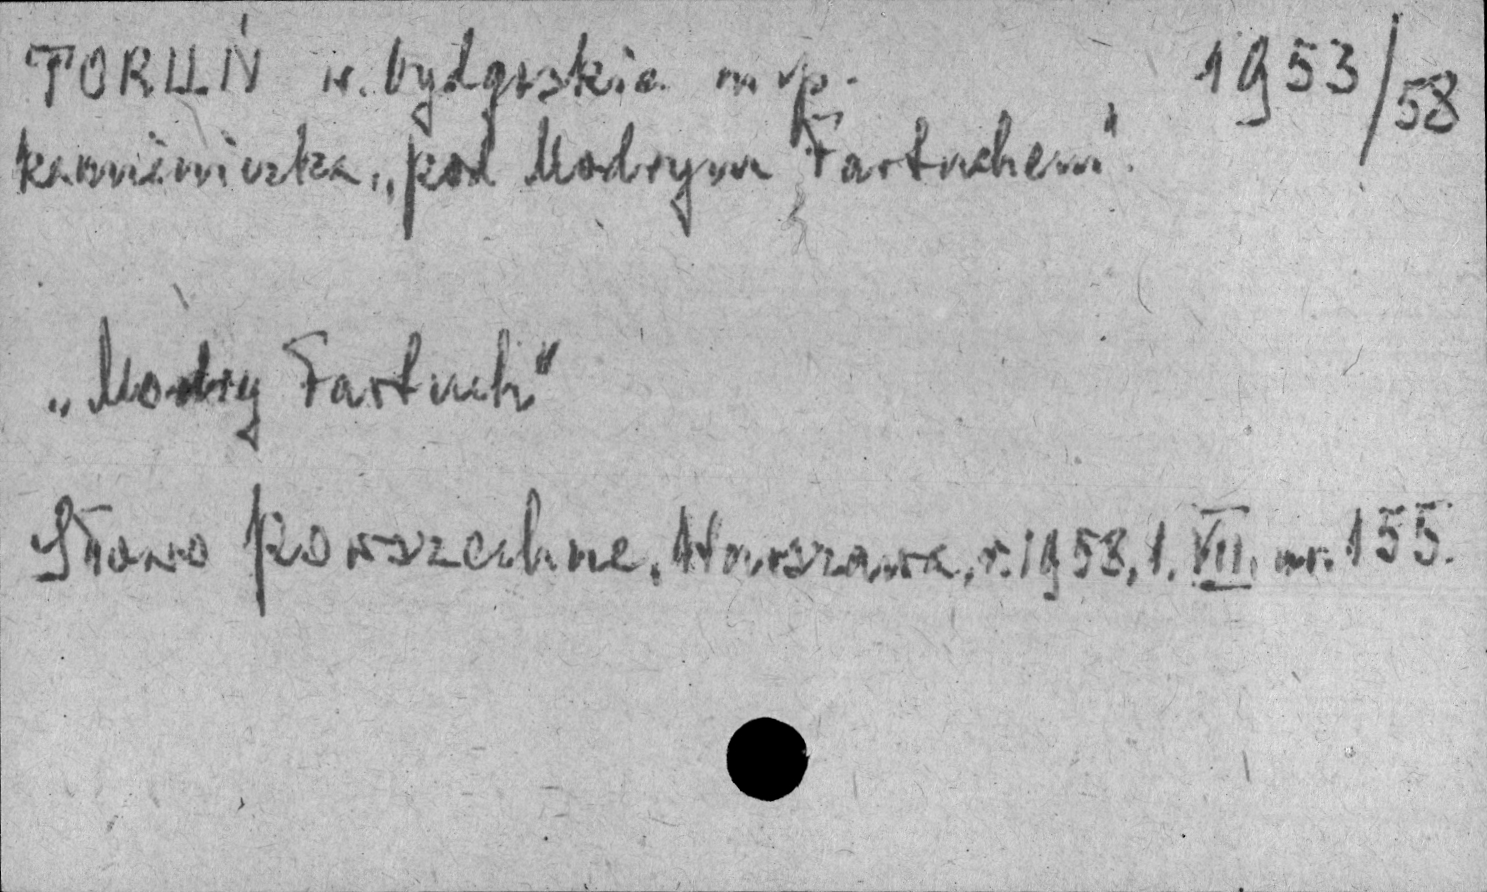 TORUŃ w. bydgoskie m. vp. 1953/58
kamieniczka „pod Modrym Fartuchem".
„Modry Fartuch"
Słowo Powszechne, Warszawa, r. 1958, 1. VII. nr. 155.